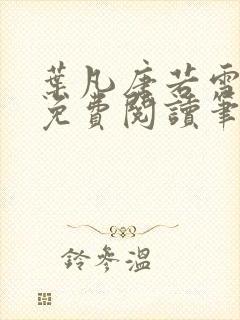 葉凡唐若雪
免費閱讀筆
鈴參溫